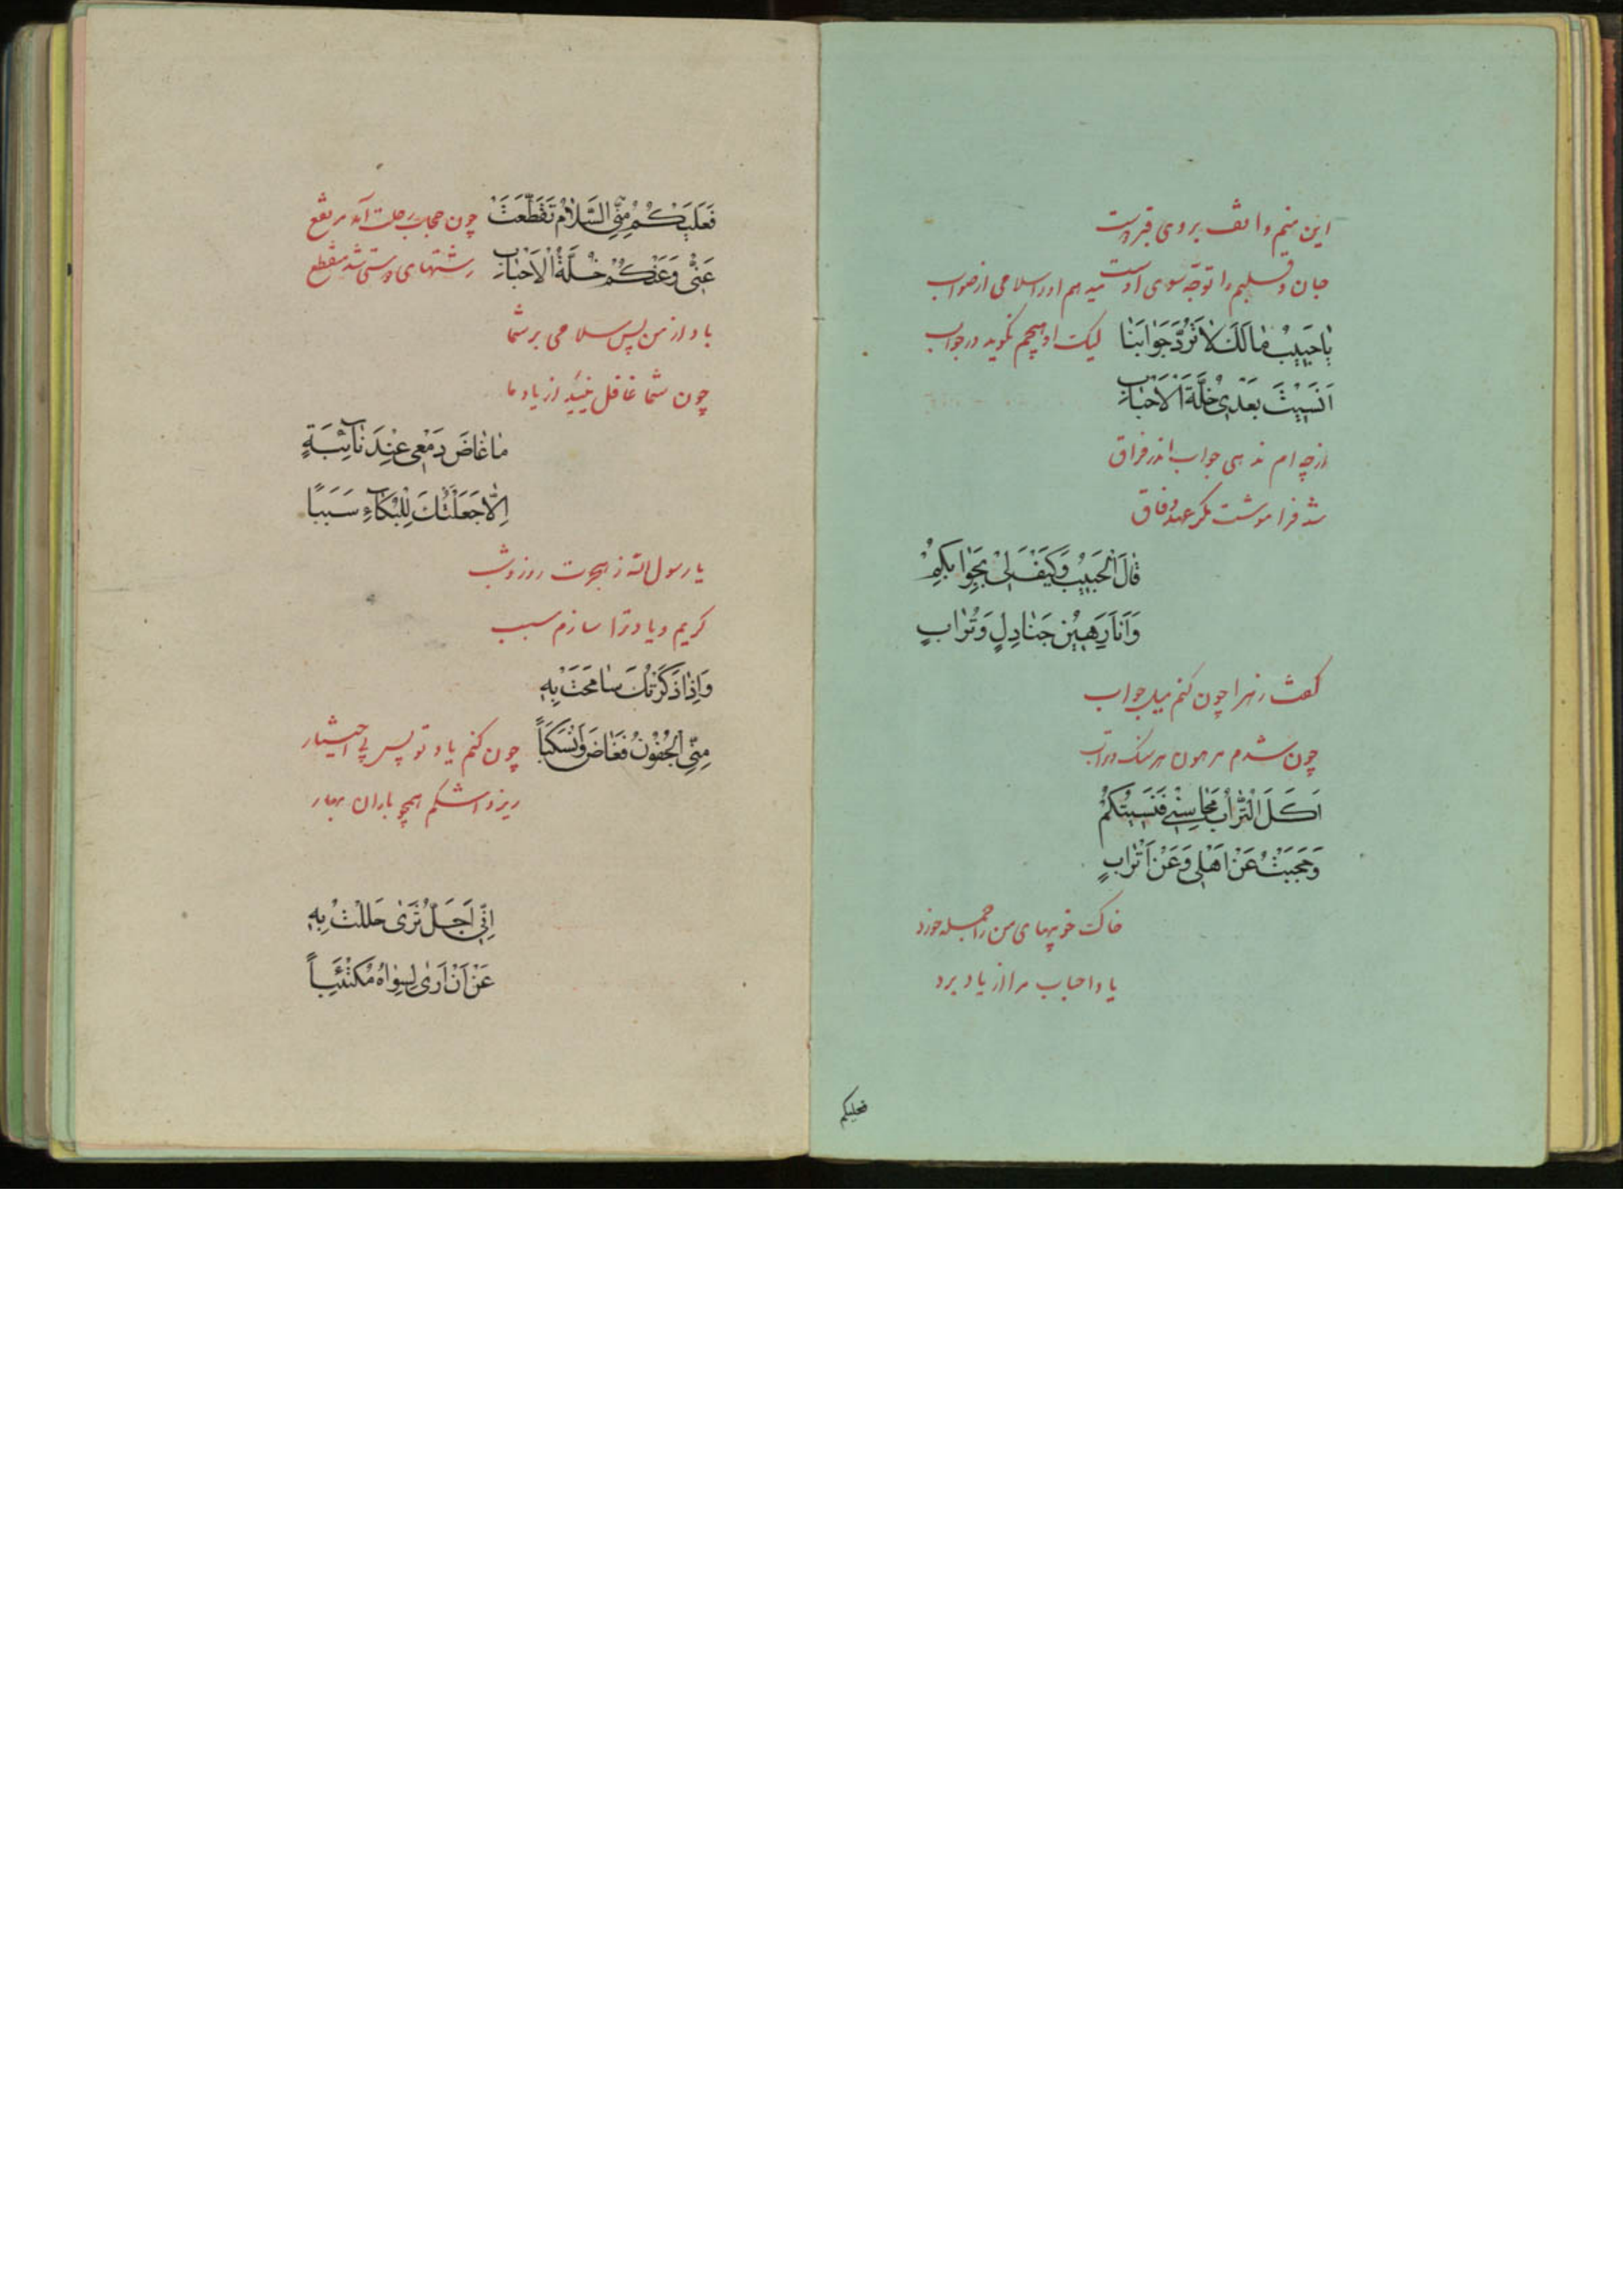 این منم واقف بروی قبر دوست
جان و قلبم را توجه سوی اوست میدهم او را سلامی از صواب
یٰا حَبِیبُ مٰا لَكَ لاٰ تَرُدَّ جَوٰابَنٰا لیک او هیچم نگوید در جواب
اَنَسِیتَ بَعْدِی خُلَّةَ الْاَحْبٰابِ
از چه ام ندهی جواب اندر فراق
شد فراموشت مگر عهد وفاق
قٰالَ الْحَبِیبُ وَكَیْفَ لِی بِجَوٰابِكُمْ
وَاَنَا رَهِینُ جَنٰادِلٍ وَتُرٰابٍ
گفت زهرا چون کنم میل جواب
چون شدم مرهون هر سنک و تراب
اَكَلَ التُّرٰابُ مَحٰاسِنِی فَنَسِیتُكُمْ
وَحُجِبْتُ عَنْ اَهْلِی وَعَنْ اَتْرٰابٍ
خاک خوبیهای من را جمله خورد
یاد احباب مرا از یاد برد
فعلیکم
فَعَلَیْكُمْ مِنِّی السَّلاٰمُ تَقَطَّعَتْ چون حجاب رحلت آمد مرتفع
عَنِّی وَعَنْكُمْ خُلَّةُ الْاَحْبٰابِ رشتهای دوستی شد منقطع
باد از من پس سلامی بر شما
چون شما غافل نئید از یاد ما
مٰا غٰاضَ دَمْعِی عِنْدَ نٰائِبَةٍ
اِلّاٰ جَعَلْتُكَ لِلْبُكٰاءِ سَبَبًا
یا رسول الله ز هجرت روز و شب
کریم و یاد ترا سازم سبب
وَاِذٰا ذَكَرْتُكَ سٰامَحَتْ بِهِ
مِنِّی الْجُفُونُ فَغٰاضَ وَانْسَكَبٰاً چون کنم یاد تو پس بی اختیار
ریزد اشکم همچو باران بهار
اِنِّی اُجِلُّ ثَرًی حَلَلْتُ بِهِ
عَنْ اَنْ اَرٰی لِسِوٰاهُ مُكْتَئِبٰاً